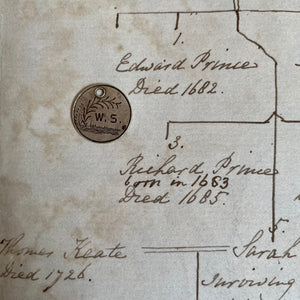 1.
Edward Prince
Died 1682.
W.S.
3.
Richard Prince
born in 1683
Died 1685.
5.
Thomas Keate
Died 1726.
Sarah
Surviving
in